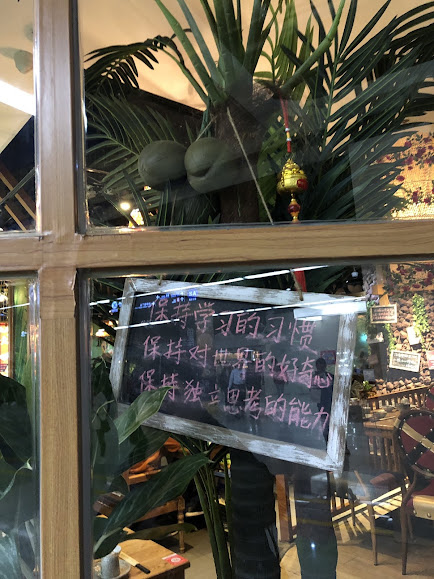 保持学习的习惯
保持对世界的好奇心
保持独立思考的能力